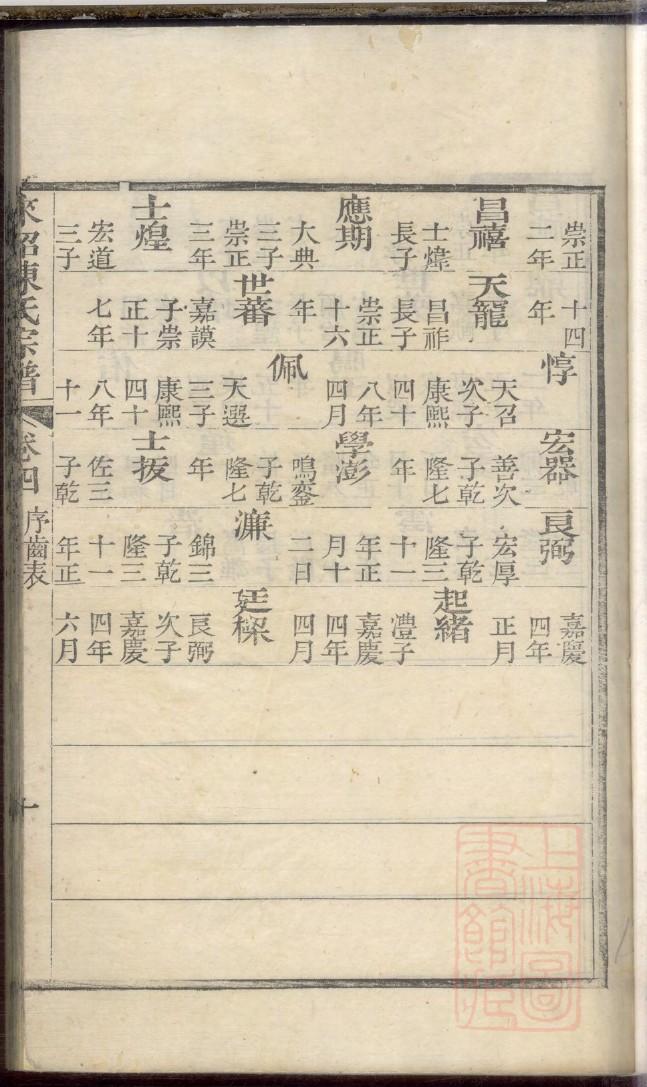 崇正
二年
昌禧
士煒
長子
應期
大典
三子
崇正
三年
士煌
宏道
三子
十四
年
天寵
昌祚
長子
崇正
十六
年
世蕃
嘉謨
子崇
正十
七年
惇
天召
次子
康熙
四十
八年
四月
佩
天選
三子
康熙
四十
八年
十一
宏器
善次
子乾
隆七
年
學澎
鳴鑾
子乾
隆七
年
士抜
佐三
子乾
良弼
宏厚
子乾
隆三
十一
年正
月十
二日
濂
錦三
子乾
隆三
十一
年正
嘉慶
四年
正月
起緒
澧子
嘉慶
四年
四月
廷樑
良弼
次子
嘉慶
四年
六月
陳氏宗譜 卷四 序齒表 十
上海圖書館藏